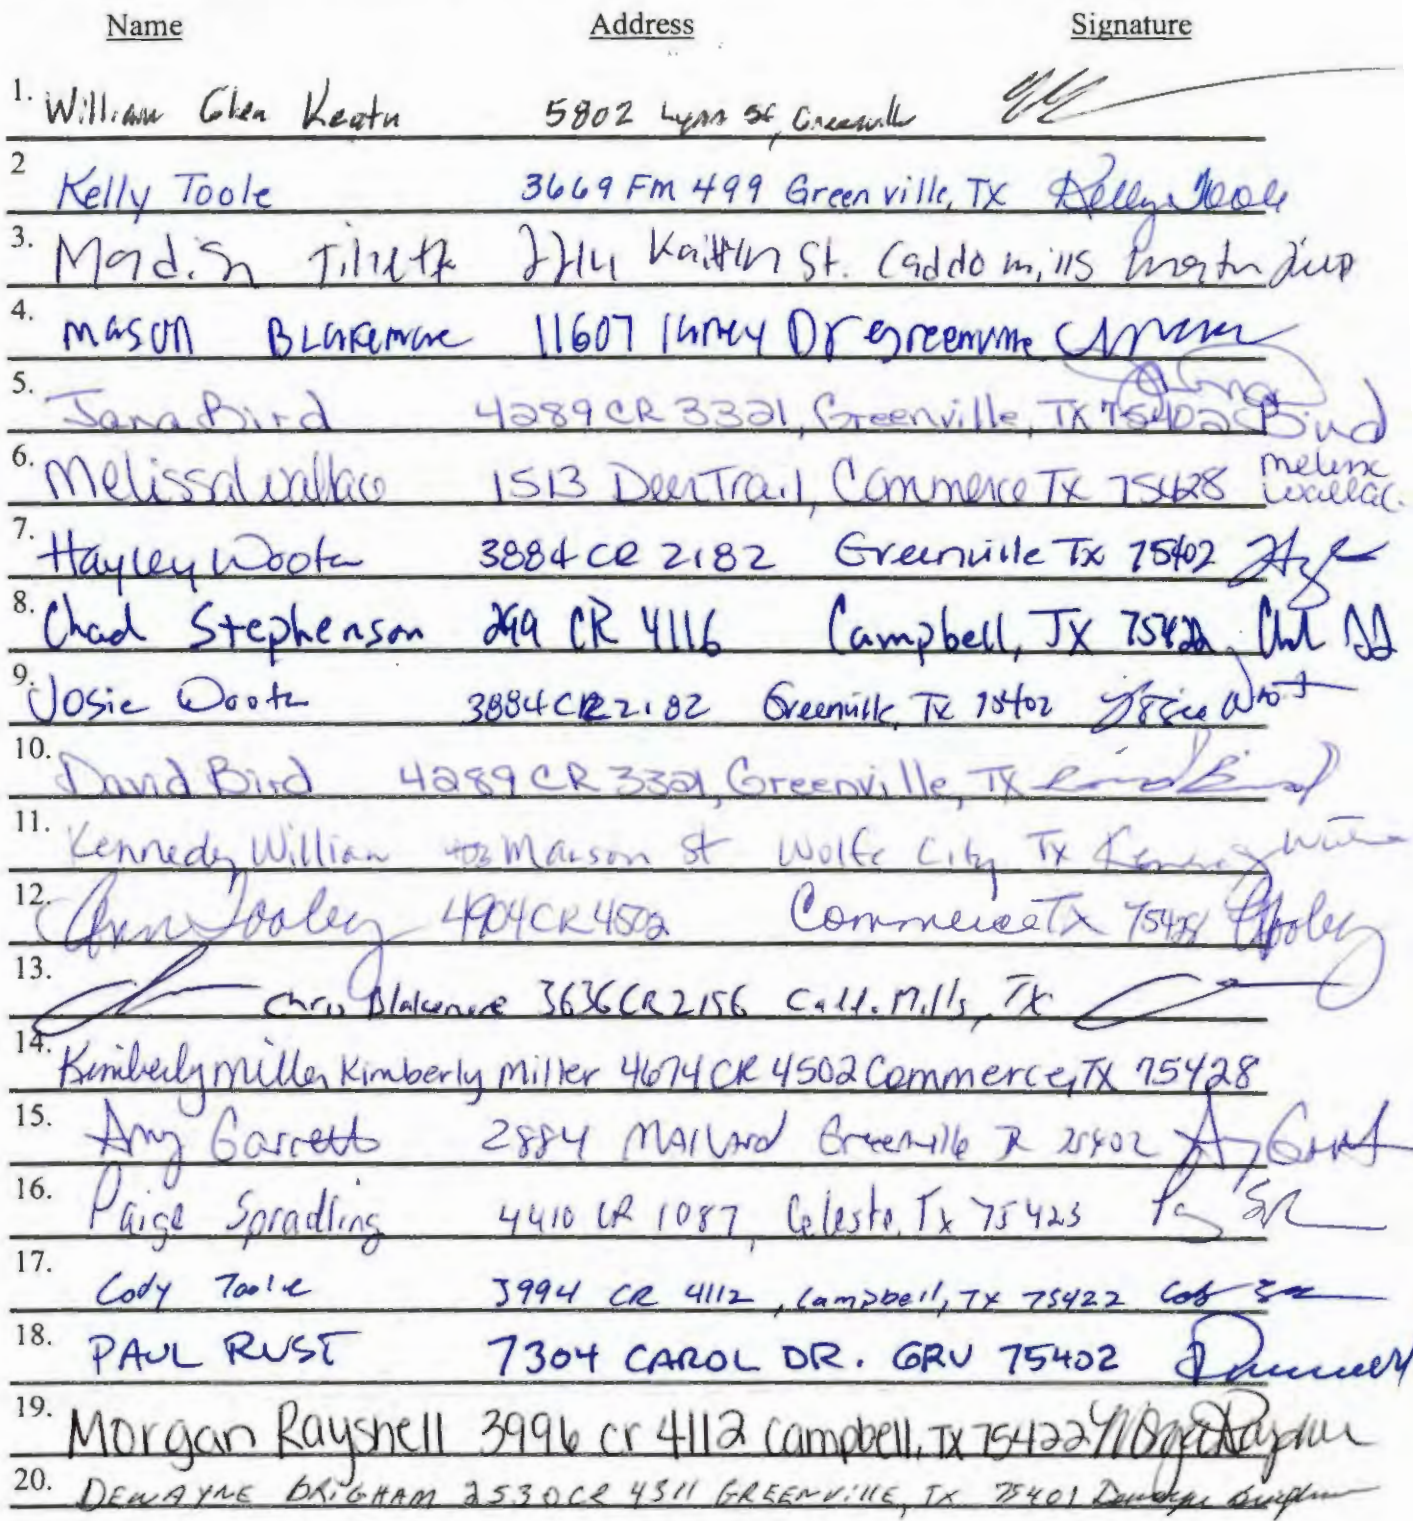 Name Address Signature
1. William Glen 5802 Lynn St, Greenville
2 Kelly Toole 3669 FM 499 Greenville, TX Kelly Toole
3. Kaitlyn St. Caddo mills
4. Mason Blakemore 11607 Dr greenville
5. Jana Bird 4289 CR 3321, Greenville, TX 75402 Jana Bird
6. Melissa Wallace 1513 Deer Trail, Commerce TX 75428 Melissa Wallace
7. Hayley Wooten 3884 CR 2182 Greenville Tx 75402
8. Chad Stephenson CR 4116 Campbell, TX 75422
9. Josie Wooten 3884 CR 2182 Greenville, Tx 75402 Josie
10. David Bird 4289 CR 3321, Greenville, TX David Bird
11. Kennedy William St Wolfe City Tx Kennedy
12. Ann Tooley 4904 CR 4502 Commerce Tx 75428 Tooley
13. Chris Blakemore 3636 CR 2156 Caddo Mills, TX
14. Kimberly Miller Kimberly Miller 4674 CR 4502 Commerce, TX 75428
15. Amy Garrett 2884 Mallard Greenville TX 75402
16. Paige Spradling 4410 CR 1087, Celeste, Tx 75423
17. Cody Toole 3994 CR 4112, Campbell, TX 75422
18. PAUL RUST 7304 CAROL DR. GRV 75402
19. Morgan Rayshell 3996 cr 4112 Campbell, TX 75422 Morgan Rayshell
20. DEWAYNE BRIGHAM 2530 CR 4311 GREENVILLE, TX 75401 Dewayne Brigham